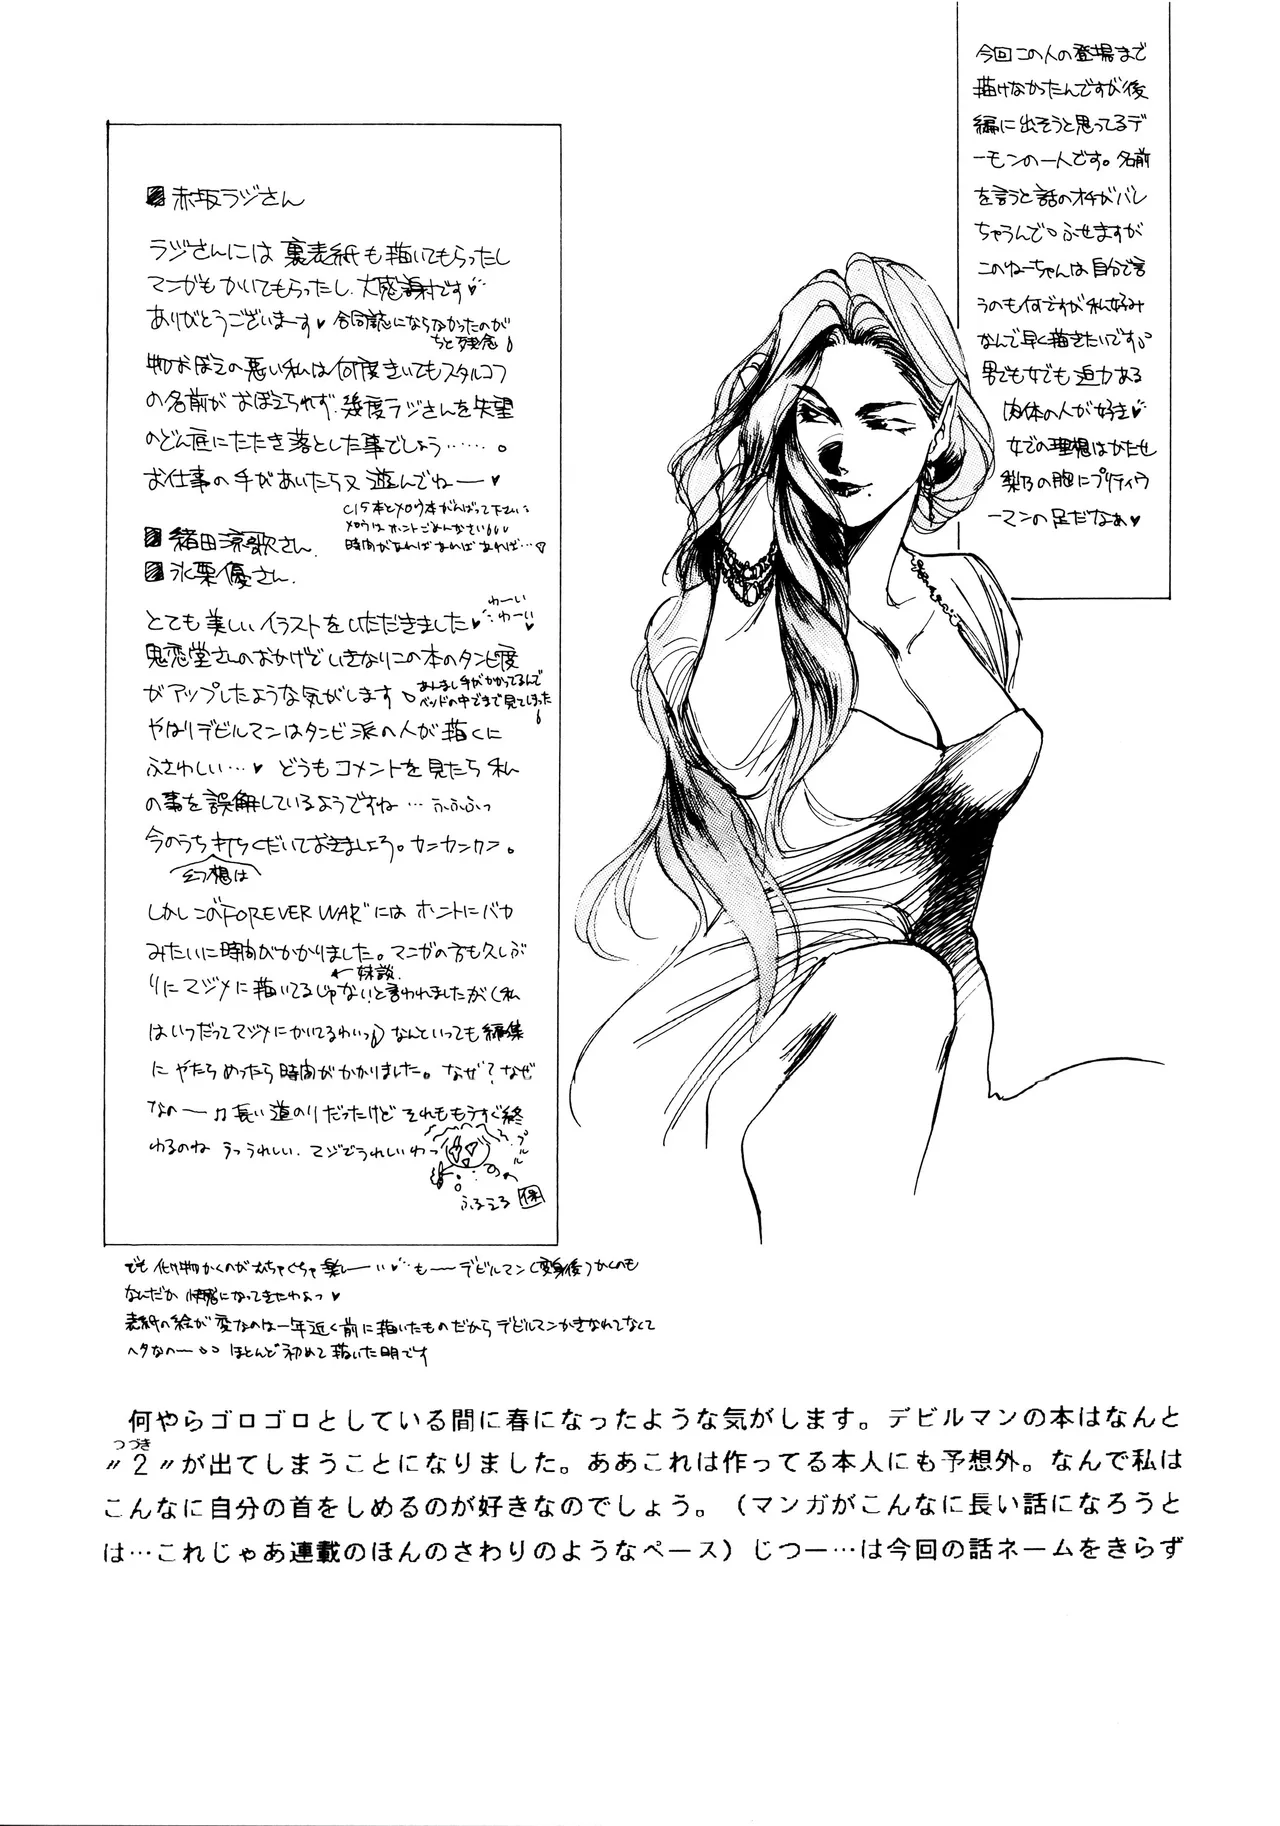 今回この人の登場まで
描けなかったんですが後
編に出そうと思ってるデ
ーモンの一人です。名前
を言うと話のオチがバレ
ちゃうんで ふせますが
このねーちゃんは自分で言
うのも何ですが私好み
なんで早く描きたいです
男でも女でも迫力ある
肉体の人が好き♥
女での理想はかたせ
梨乃の胸にプリティウ
ーマンの足だなぁ♥
赤坂ラジさん
ラジさんには裏表紙も描いてもらったし
マンガもかいてもらったし、大感謝です♥
ありがとうございまーす♥ 合同誌にならなかったのが
ちと残念
物おぼえの悪い私は何度きいてもスタルコフ
の名前がおぼえられず、幾度ラジさんを失望
のどん底にたたき落とした事でしょう……。
お仕事の手があいたら又遊んでねー♥
本とメロウ本がんばって下さい
メロウはホントごめんなさい
時間があればあればあれば…
緒田涼歌さん
氷栗優さん
とても美しいイラストをいただきました♥ わーい わーい♥
鬼恋堂さんのおかげでいきなりこの本のタンビ度
がアップしたような気がします あんまし手がかかってるんで
ベッドの中でまで見てしまった
やはりデビルマンはタンビ派の人が描くに
ふさわしい…♥ どうもコメントを見たら私
の事を誤解しているようですね… ふふふっ
今のうち打ちくだいておきましょう。カンカンカン。
幻想は
しかしこの"FOREVER WAR"にはホントにバカ
みたいに時間がかかりました。マンガの方も久しぶ
←妹談
りにマジメに描いてるじゃないと言われましたが(私
はいつだってマジメにかいてるわいっ) なんといっても編集
にやたらめったら時間がかかりました。なぜ?なぜ
なのー♫長い道のりだったけど それももうすぐ終
わるのね うっうれしい、マジでうれしいわっ
プルル
ふるえる
でも化け物かくのがむちゃくちゃ楽しー♥もーデビルマン(変身後)かくのも
なんだか快感になってきたわよっ♥
表紙の絵が変なのは一年近く前に描いたものだからデビルマンかきなれてなくて
ヘタなのー ほとんど初めて描いた明です
何やらゴロゴロとしている間に春になったような気がします。デビルマンの本はなんと
つづき
〃2〃が出てしまうことになりました。ああこれは作ってる本人にも予想外。なんで私は
こんなに自分の首をしめるのが好きなのでしょう。(マンガがこんなに長い話になろうと
は…これじゃあ連載のほんのさわりのようなペース)じつー…は今回の話ネームをきらず